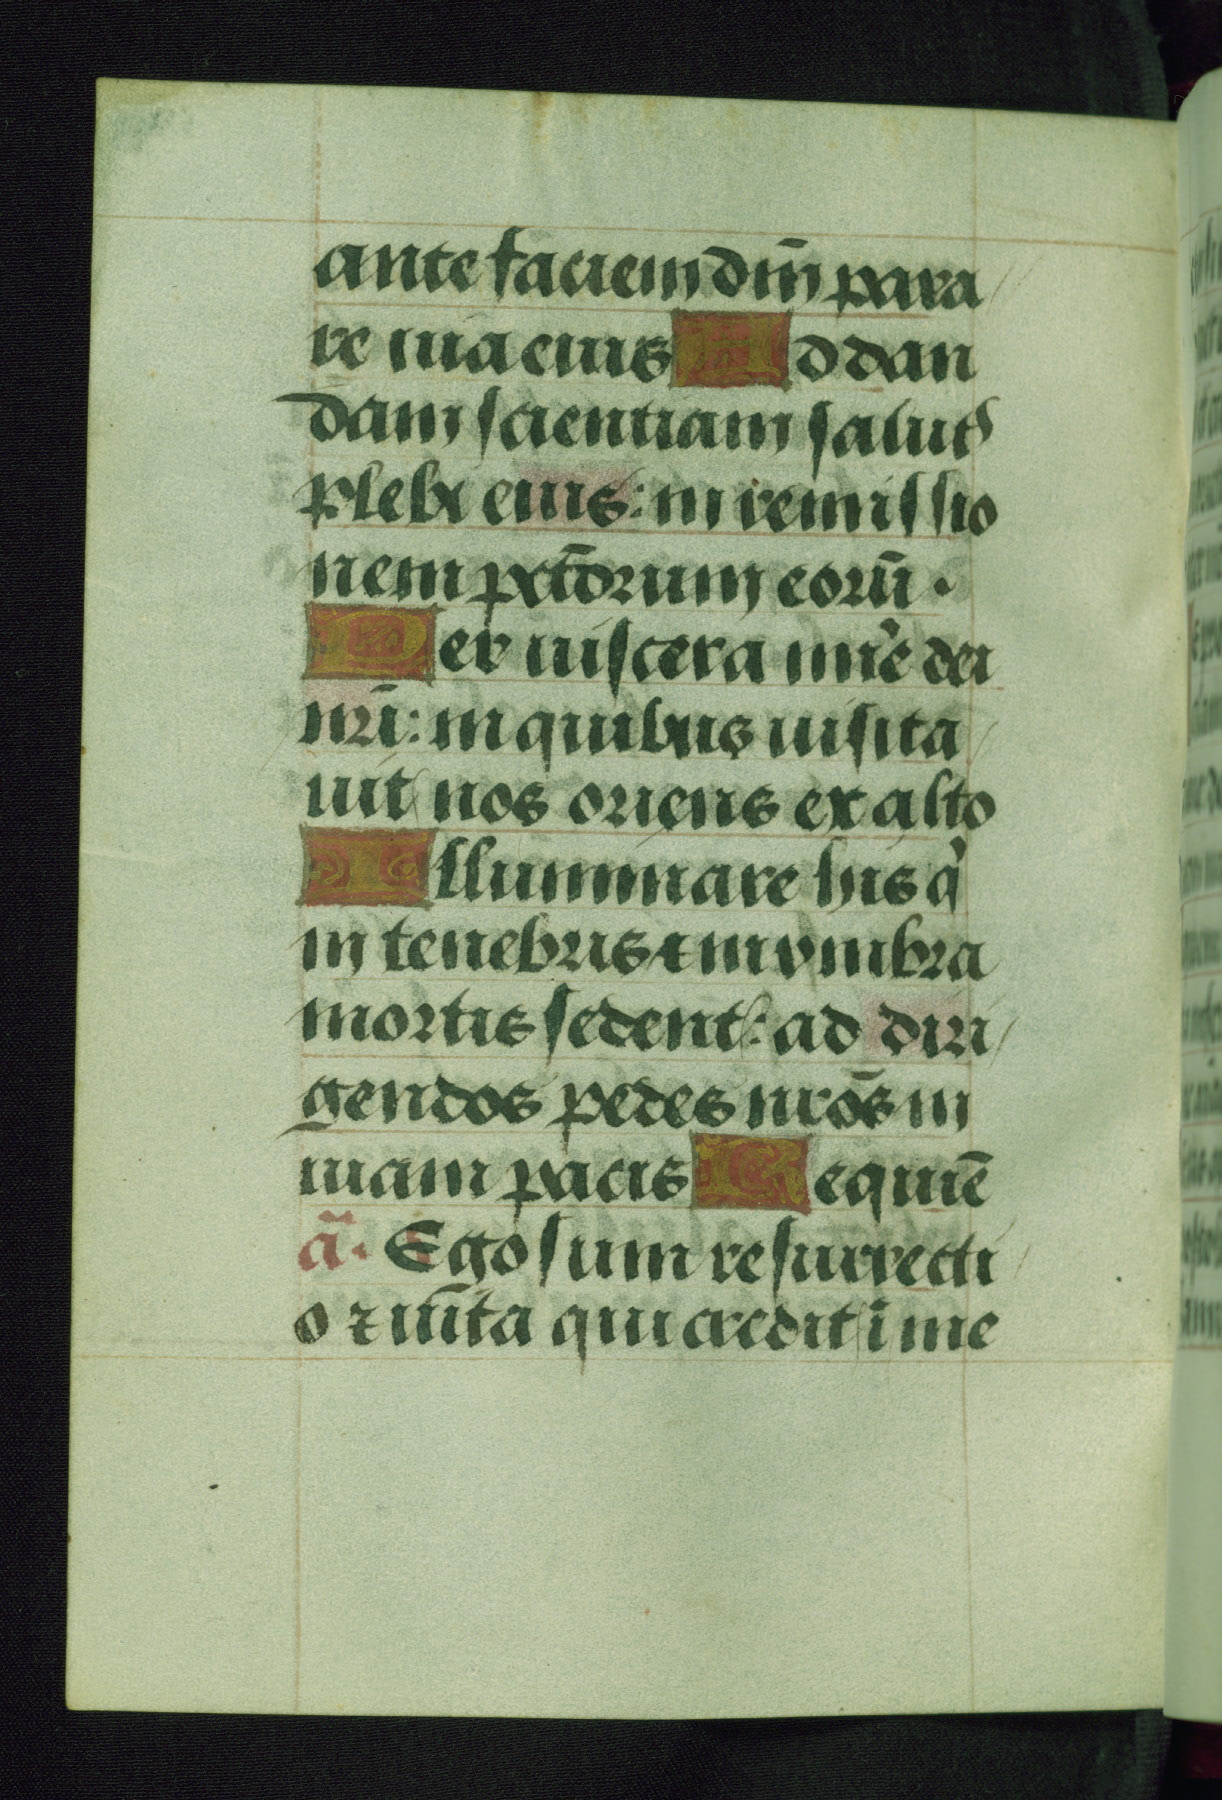 ante faciem dm̄ para
re uia eius Ad dan
dam scientiam salutꝭ
plebi eius: in remissio
nem pctōrum eorū.
Per uiscera mīe dei
nr̄i: in quibus uisita
uit nos oriens ex alto
Illuminare his q'
in tenebris & in vmbra
mortis sedent: ad diri
gendos pedes nrōs in
uiam pacis Requiē
ā. Ego sum resurrecti
o ⁊ uīta qui credit ī me